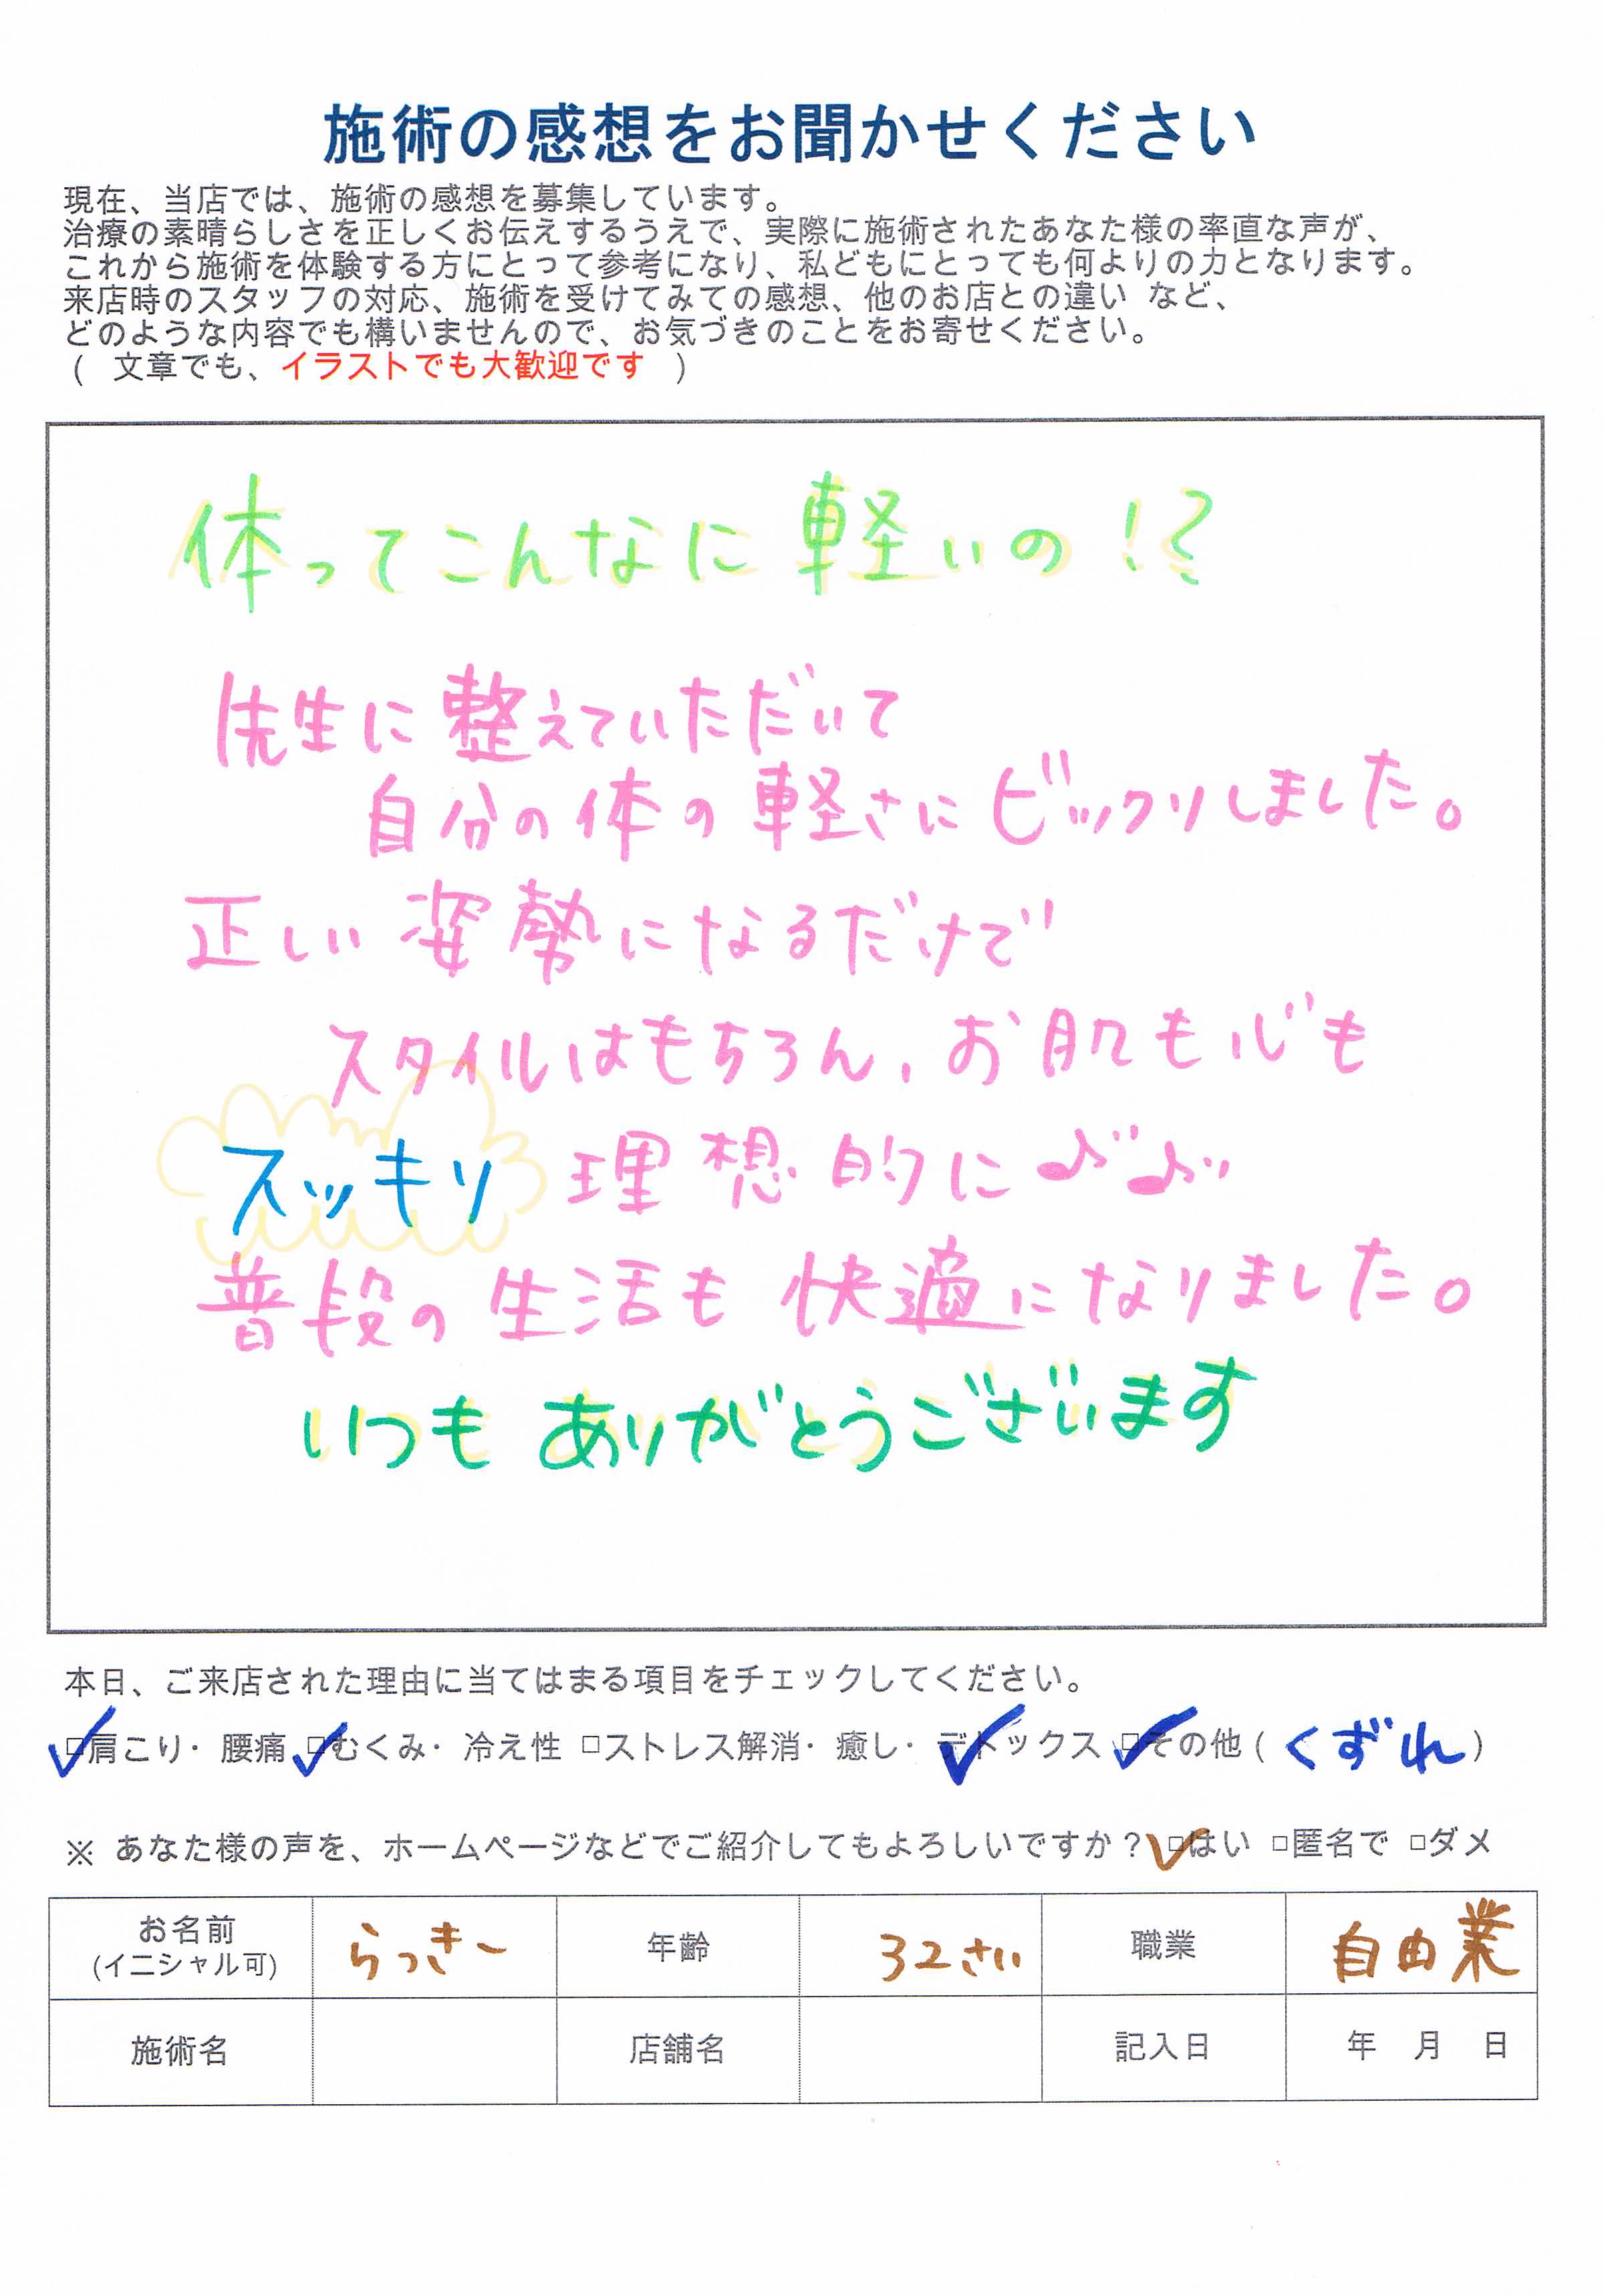 施術の感想をお聞かせください
現在、当店では、施術の感想を募集しています。
治療の素晴らしさを正しくお伝えするうえで、実際に施術されたあなた様の率直な声が、
これから施術を体験する方にとって参考になり、私どもにとっても何よりの力となります。
来店時のスタッフの対応、施術を受けてみての感想、他のお店との違い など、
どのような内容でも構いませんので、お気づきのことをお寄せください。
( 文章でも、イラストでも大歓迎です )
体ってこんなに軽いの!?
先生に整えていただいて
自分の体の軽さにビックリしました。
正しい姿勢になるだけで
スタイルはもちろん、お肌も心も
スッキリ 理想的に♪♪
普段の生活も快適になりました。
いつもありがとうございます
本日、ご来店された理由に当てはまる項目をチェックしてください。
☑肩こり・腰痛 ☑むくみ・冷え性 □ストレス解消・癒し・デトックス ☑その他 ( くずれ )
※ あなた様の声を、ホームページなどでご紹介してもよろしいですか? ☑はい □匿名で □ダメ
お名前 らっきー 年齢 32さい 職業 自由業
(イニシャル可)
施術名 店舗名 記入日 年 月 日